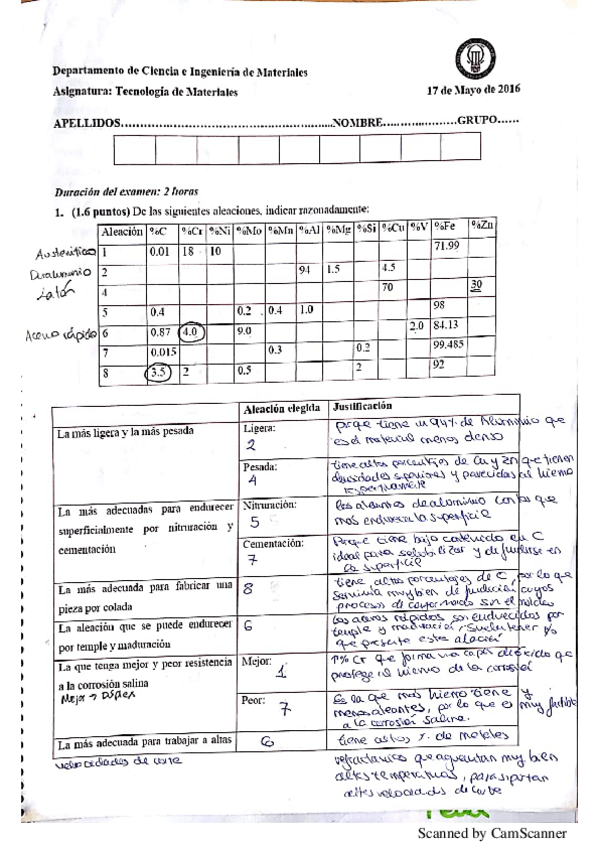 Departamento de Ciencia e Ingeniería de Materiales
Asignatura: Tecnología de Materiales
17 de Mayo de 2016
APELLIDOS...........................................................NOMBRE.....................GRUPO......
Duración del examen: 2 horas
1. (1.6 puntos) De las siguientes aleaciones, indicar razonadamente:
Aleación %C %Cr %Ni %Mo %Mn %Al %Mg %Si %Cu %V %Fe %Zn
Austenítico 1 0.01 18 10 71.99
Duraluminio 2 94 1.5 4.5
Latón 4 70 30
5 0.4 0.2 0.4 1.0 98
Acero rápido 6 0.87 4.0 9.0 2.0 84.13
7 0.015 0.3 0.2 99.485
8 3.5 2 0.5 2 92
Aleación elegida Justificación
La más ligera y la más pesada
Ligera:
2
porqe tiene un 94% de Aluminio que
es el material menos denso
Pesada:
4
tiene altos porcentajes de Cu y Zn que tienen
densidades superiores y parecidas al hierro
La más adecuadas para endurecer
superficialmente por nitruración y
cementación
Nitruración:
5
los de aluminio con los que
más endurece la superficie
Cementación:
7
Porque tiene bajo contenido en C
ideal para solubilizar y difundirse en
la superficie
La más adecuada para fabricar una
pieza por colada
8
tiene altos porcentajes de C, por lo que
serviría muy bien de fundición cuyos
procesos de conformado son el moldeo
La aleación que se puede endurecer
por temple y maduración
6
Los aceros rápidos son endurecidos por
temple y maduración, suelen tener
que presenta esta aleación
La que tenga mejor y peor resistencia
a la corrosión salina
Mejor:
1
% Cr que forma una capa de óxido que
protege al hierro de la corrosión
Peor:
7
Es la que más hierro tiene y
menos aleantes, por lo que es muy
a la corrosión salina.
La más adecuada para trabajar a altas
velocidades de corte
6
tiene altos % de metales
refractarios que aguantan muy bien
altas temperaturas, para soportar
altas velocidades de corte
Scanned by CamScanner